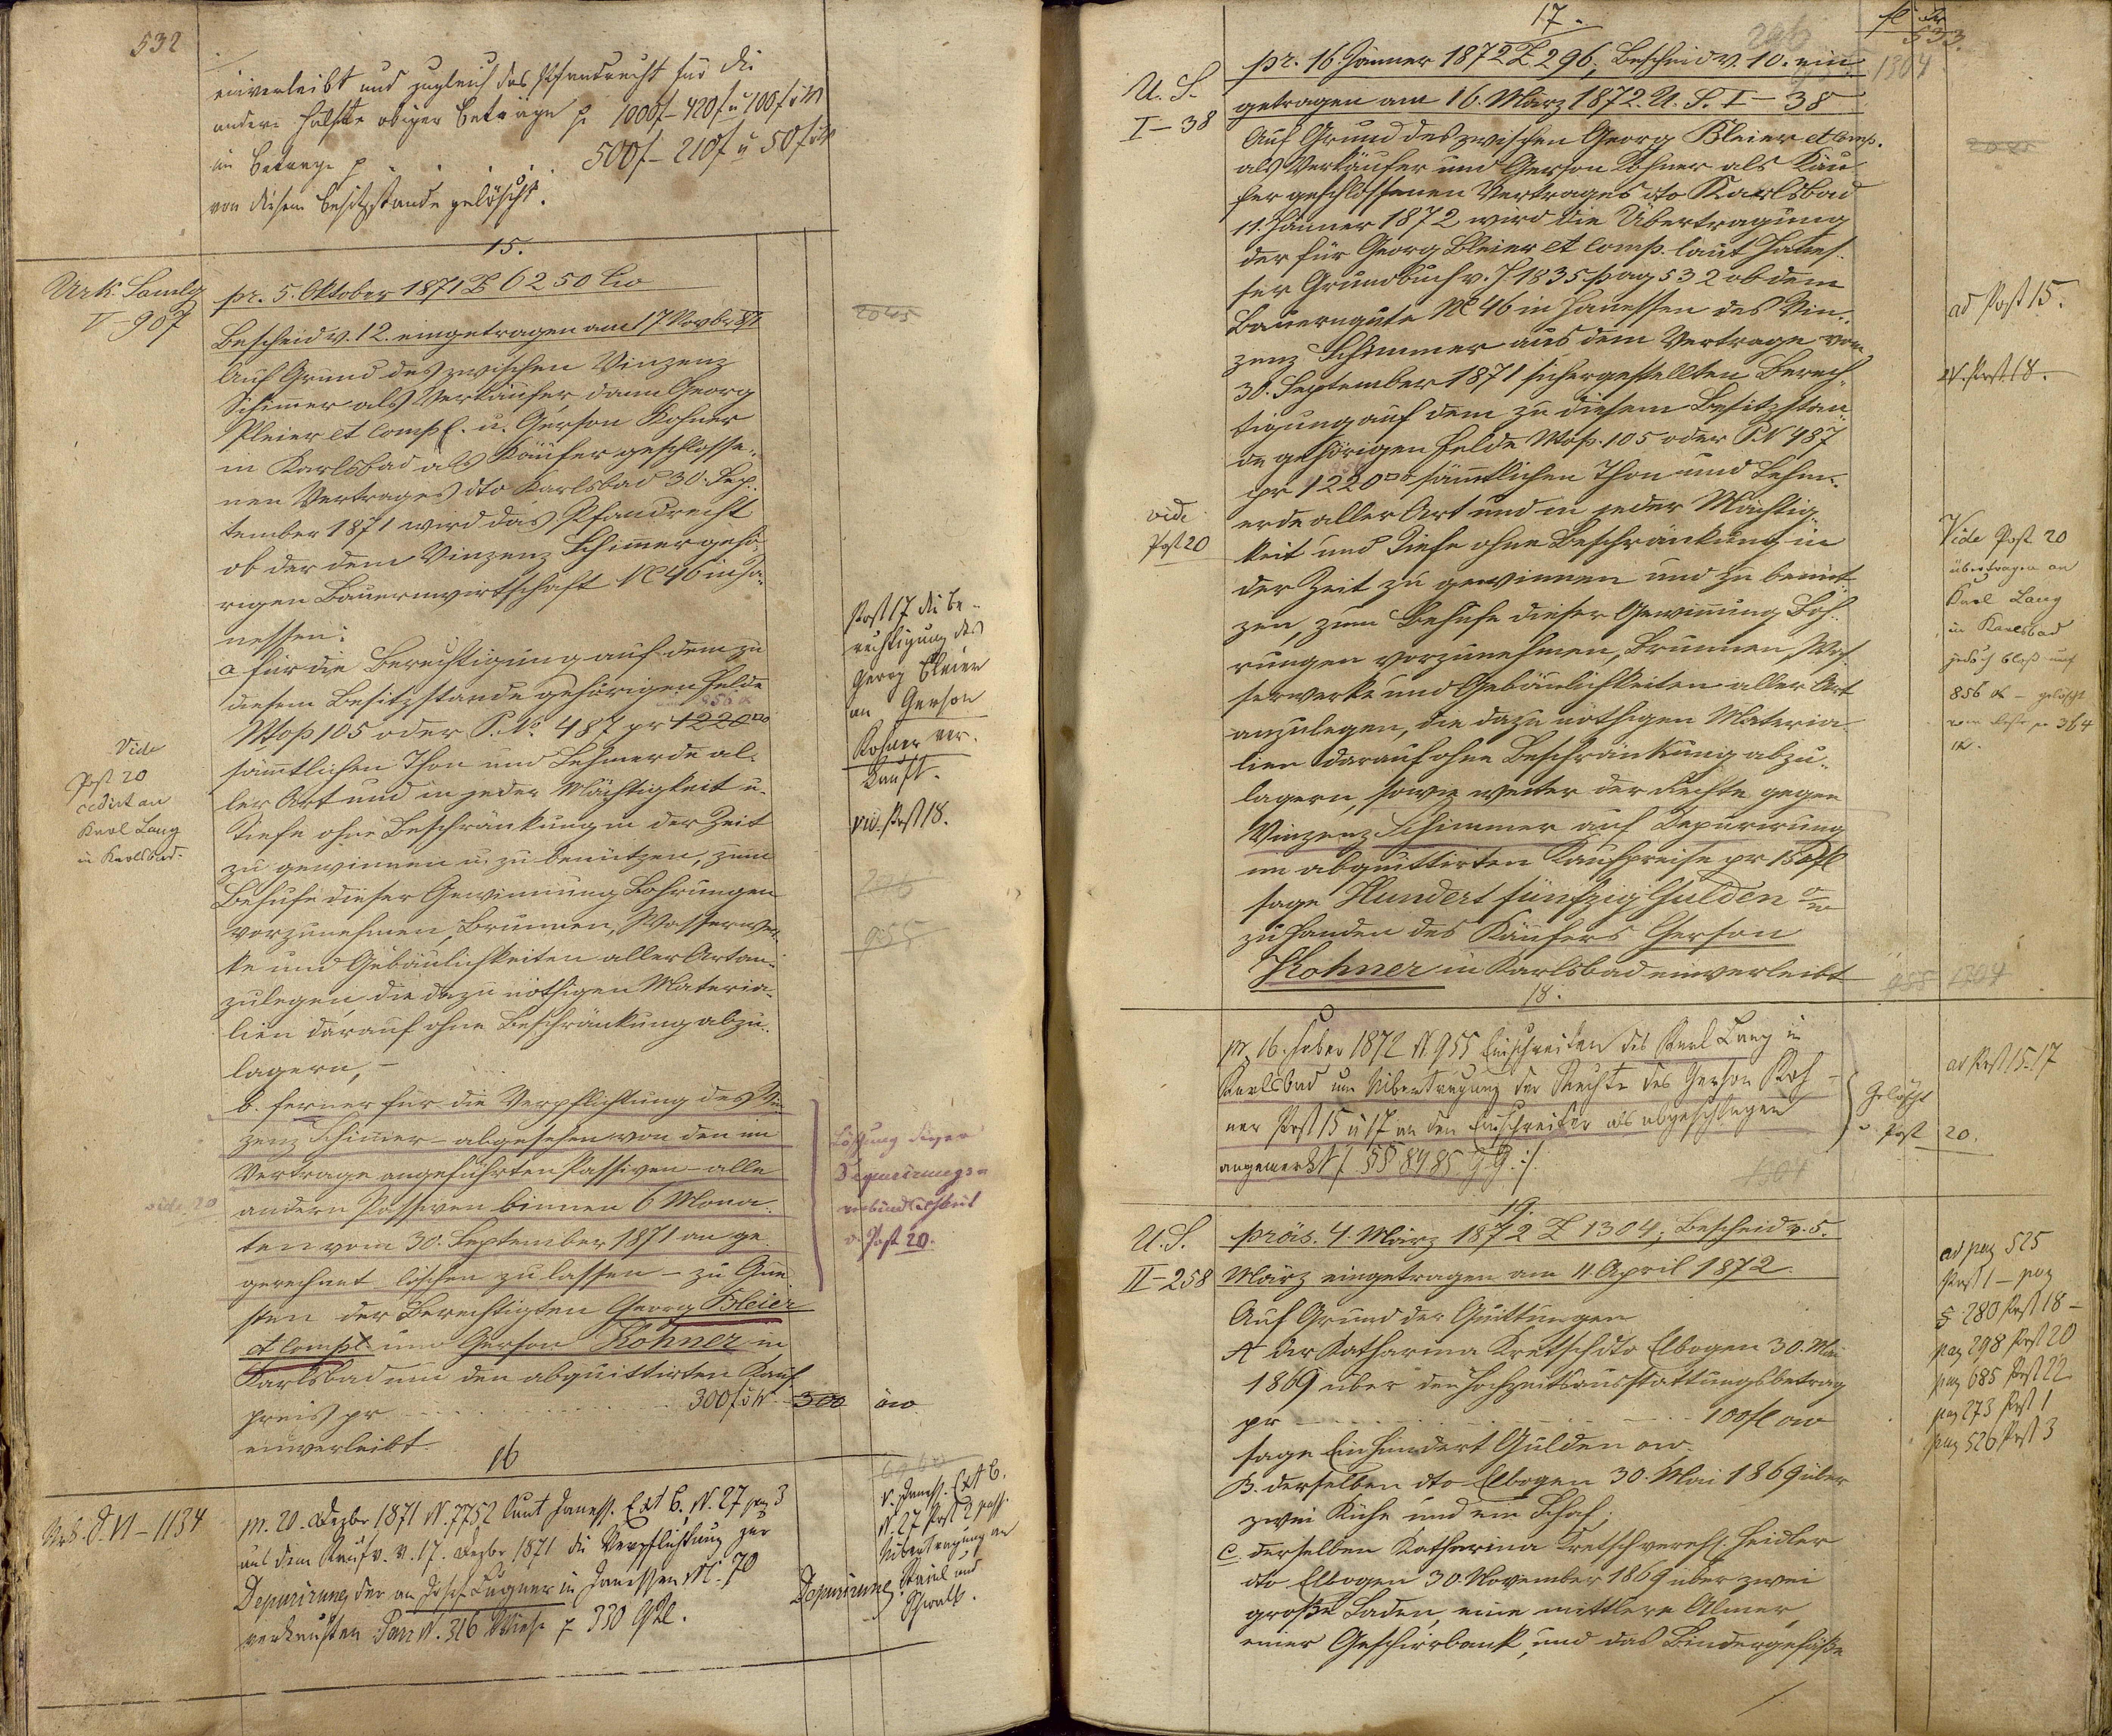 532
einverleibt und zugleich das Pfandrecht für die
andere Hälfte obiger Beträge p 1000f– 420f u 100f öW
im Betrage p . . . 500f– 210f u 50f öW
von diesem Besitzstande gelöscht.
15.
Urk. Samlg
V–907
pr. 5. Oktober 1871 Z 6250 Civ
Bescheid v. 12. eingetragen am 17. Novbr 871
Auf Grund des zwischen Vinzenz
Schimer als Verkäufer dann Georg
Pleier et Comp. u. Gerson Kohner
in Karlsbad als Käufer geschlosse-
nen Vertrages dto Karlsbad 30. Sep-
tember 1871 wird das Pfandrecht
ob der dem Vinzenz Schimer gehö-
rigen Bauernwirtschaft N 46 in Ja-
nessen:
a für die Berechtigung auf dem zu
diesem Besitzstande gehörigen Felde
856
Top 105 oder P. No. 487 pr 1220
sämtlichen Thon und Lehmerde al-
ler Art und in jeder Mächtigkeit u.
Tiefe ohne Beschränkung in der Zeit
zu gewinnen u. zu benützen, zum
Behufe dieser Gewinnung Bohrungen
vorzunehmen, Brunnen, Wasserwer-
ke und Gebäulichkeiten aller Art an-
zulegen, die dazu nöthigen Materia-
lien darauf ohne Beschränkung abzu-
lagern, –
b. ferner für die Verpflichtung des Vin-
zenz Schimer – abgesehen von den im
Vertrage angeführten Passiven – alle
andern Passiven binnen 6 Mona-
ten vom 30. September 1871 an ge-
gerechnet löschen zu lassen – zu Gun-
sten der Berechtigten Georg Bleier
et Comp. und Gerson Kohner in
Karlsbad um den abquittirten Kauf-
preis pr . . . 300f öW. 300 öw
einverleibt.
Vide
Post 20
cedirt an
Karl Lang
in Karlsbad.
vide 20
2045
Post 17 die Be-
rechtigung des
Georg Bleier
an Gerson
Kohner ver-
kauft.
vid. Post 18.
296
955
Löschung dieser
Depurirungs-
verbindlichkeit
Post 20.
16
Urk. S. VI–1134
pr. 20. Dezbr 1871 N. 7752 laut Janess. Ext B. N. 27 pag 3
aus dem Kaufv. v. 17. Dezbr 1871 die Verpflichtung zur
Depurirung der an Josef Lugner in Janessen N. 70
verkauften Parz N. 316 Wiese p 330 Qkl.
Depurirung
v. Janess. Ext B.
N. 27 Post 2 pass.
Übertragung an
Stainl und
Schwalb.
17.
fl kr
533.
296
1304
U. S.
I–38
pr. 16. Jänner 1872 Z 296, Bescheid v. 10. ein-
getragen am 16. März 1872. U. S. I–38
Auf Grund des zwischen Georg Bleier et Comp.
als Verkäufer und Gerson Kohner als Käu-
fer geschlossenen Vertrages dto Karlsbad
11. Jänner 1872 wird die Übertragung
der für Georg Bleier et Comp. laut Janes-
ser Grundbuch v. J. 1835 pag 532 ob dem
Bauerngute N 46 in Janessen des Vin-
zenz Schimmer aus dem Vertrage vom
30. September 1871 sichergestellten Berech-
tigung auf dem zu diesem Besitzstan-
de gehörigen Felde Top. 105 oder P.N 487
pr 1220 sämmtlichen Thon und Lehm-
erde aller Art und in jeder Mächtig-
keit und Tiefe ohne Beschränkung in
der Zeit zu gewinnen und zu benüt-
zen, zum Behufe dieser Gewinnung Boh-
rungen vorzunehmen, Brunnen, Was-
serwerke und Gebäulichkeiten aller Art
anzulegen, die dazu nöthigen Materia-
lien darauf ohne Beschränkung abzu-
lagern, sowie weiter der Rechte gegen
Vinzenz Schimmer auf Depurirung
im abquittirten Kaufpreise pr 150fl
sage Hundert fünfzig Gulden öw
zu Handen des Käufers Gerson
Kohner in Karlsbad einverleibt
vide
Post 20
2045
ad Post 15.
vid. Post 18.
Vide Post 20
übertragen an
Karl Lang
in Karlsbad
jedoch bloß auf
856 – gelöscht
vom Reste pr 364
955 1304
18.
pr. 16. Feber 1872 N. 955 Einschreiten des Karl Lang in
Karlsbad um Übertragung der Rechte des Gerson Koh-
ner Post 15 u 17 an den Einschreiter als abgeschlagen
angemerkt /: §§ 84 85 G.G. :/
ad Post 15. 17
Gelöscht
Post 20.
1304
19.
U. S.
II–258
präs. 4. März 1872 Z 1304, Bescheid v. 5.
März eingetragen am 11. April 1872.
Auf Grund der Quittungen
A der Katharina Kretsch dto Elbogen 30. Mai
1869 über den Hochzeitsausstattungsbetrag
pr . . . 100fl ow
sage Einhundert Gulden ow.
B. derselben dto Elbogen 30. Mai 1869 über
zwei Kühe und ein Schaf;
C. derselben Katharina Kretsch verehl. Heidler
dto Elbogen 30. November 1869 über zwei
große Laden, eine mittlere Almer,
einer Geschirrbank, und das Bindergefäße
ad pag 525
Post 1 – pag
280 Post 18 –
pag 298 Post 20
pag 685 Post 22
pag 273 Post 1
pag 526 Post 3